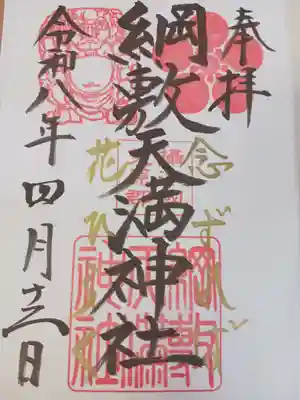 奉拝
念ずれば
綱敷天満神社
花ひらく
令和八年四月十三日